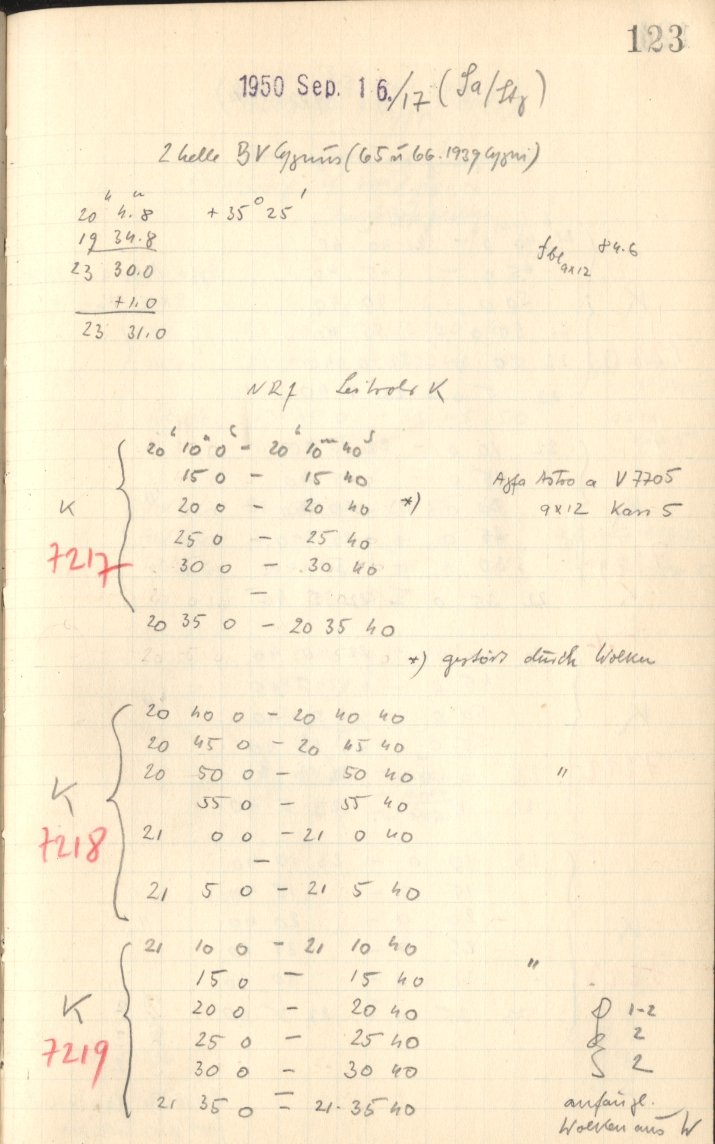 123
1950 Sep. 16./17 (Sa/Stg)
2 helle BV Cygnus (65 u 66.1939 Cygni)
20ʰ 4.ᵐ8 +35° 25'
19 34.8
23 30.0
+1.0
23 31.0
9x12 84.6
NRf Leitrohr K
20ʰ 10ᵐ 0ˢ - 20ʰ 10ᵐ 40ˢ
15 0 - 15 40 Agfa Astro a V 7705
K 20 0 - 20 40 *) 9x12 Kass 5
25 0 - 25 40
7217 30 0 - 30 40
-
20 35 0 - 20 35 40
*) gestört durch Wolken
20 40 0 - 20 40 40
20 45 0 - 20 45 40
20 50 0 - 50 40 "
K 55 0 - 55 40
7218 21 0 0 - 21 0 40
-
21 5 0 - 21 5 40
21 10 0 - 21 10 40
15 0 - 15 40 "
K 20 0 - 20 40 1-2
7219 25 0 - 25 40 2
30 0 - 30 40 2
-
21 35 0 - 21 35 40 anfängl.
Wolken aus W